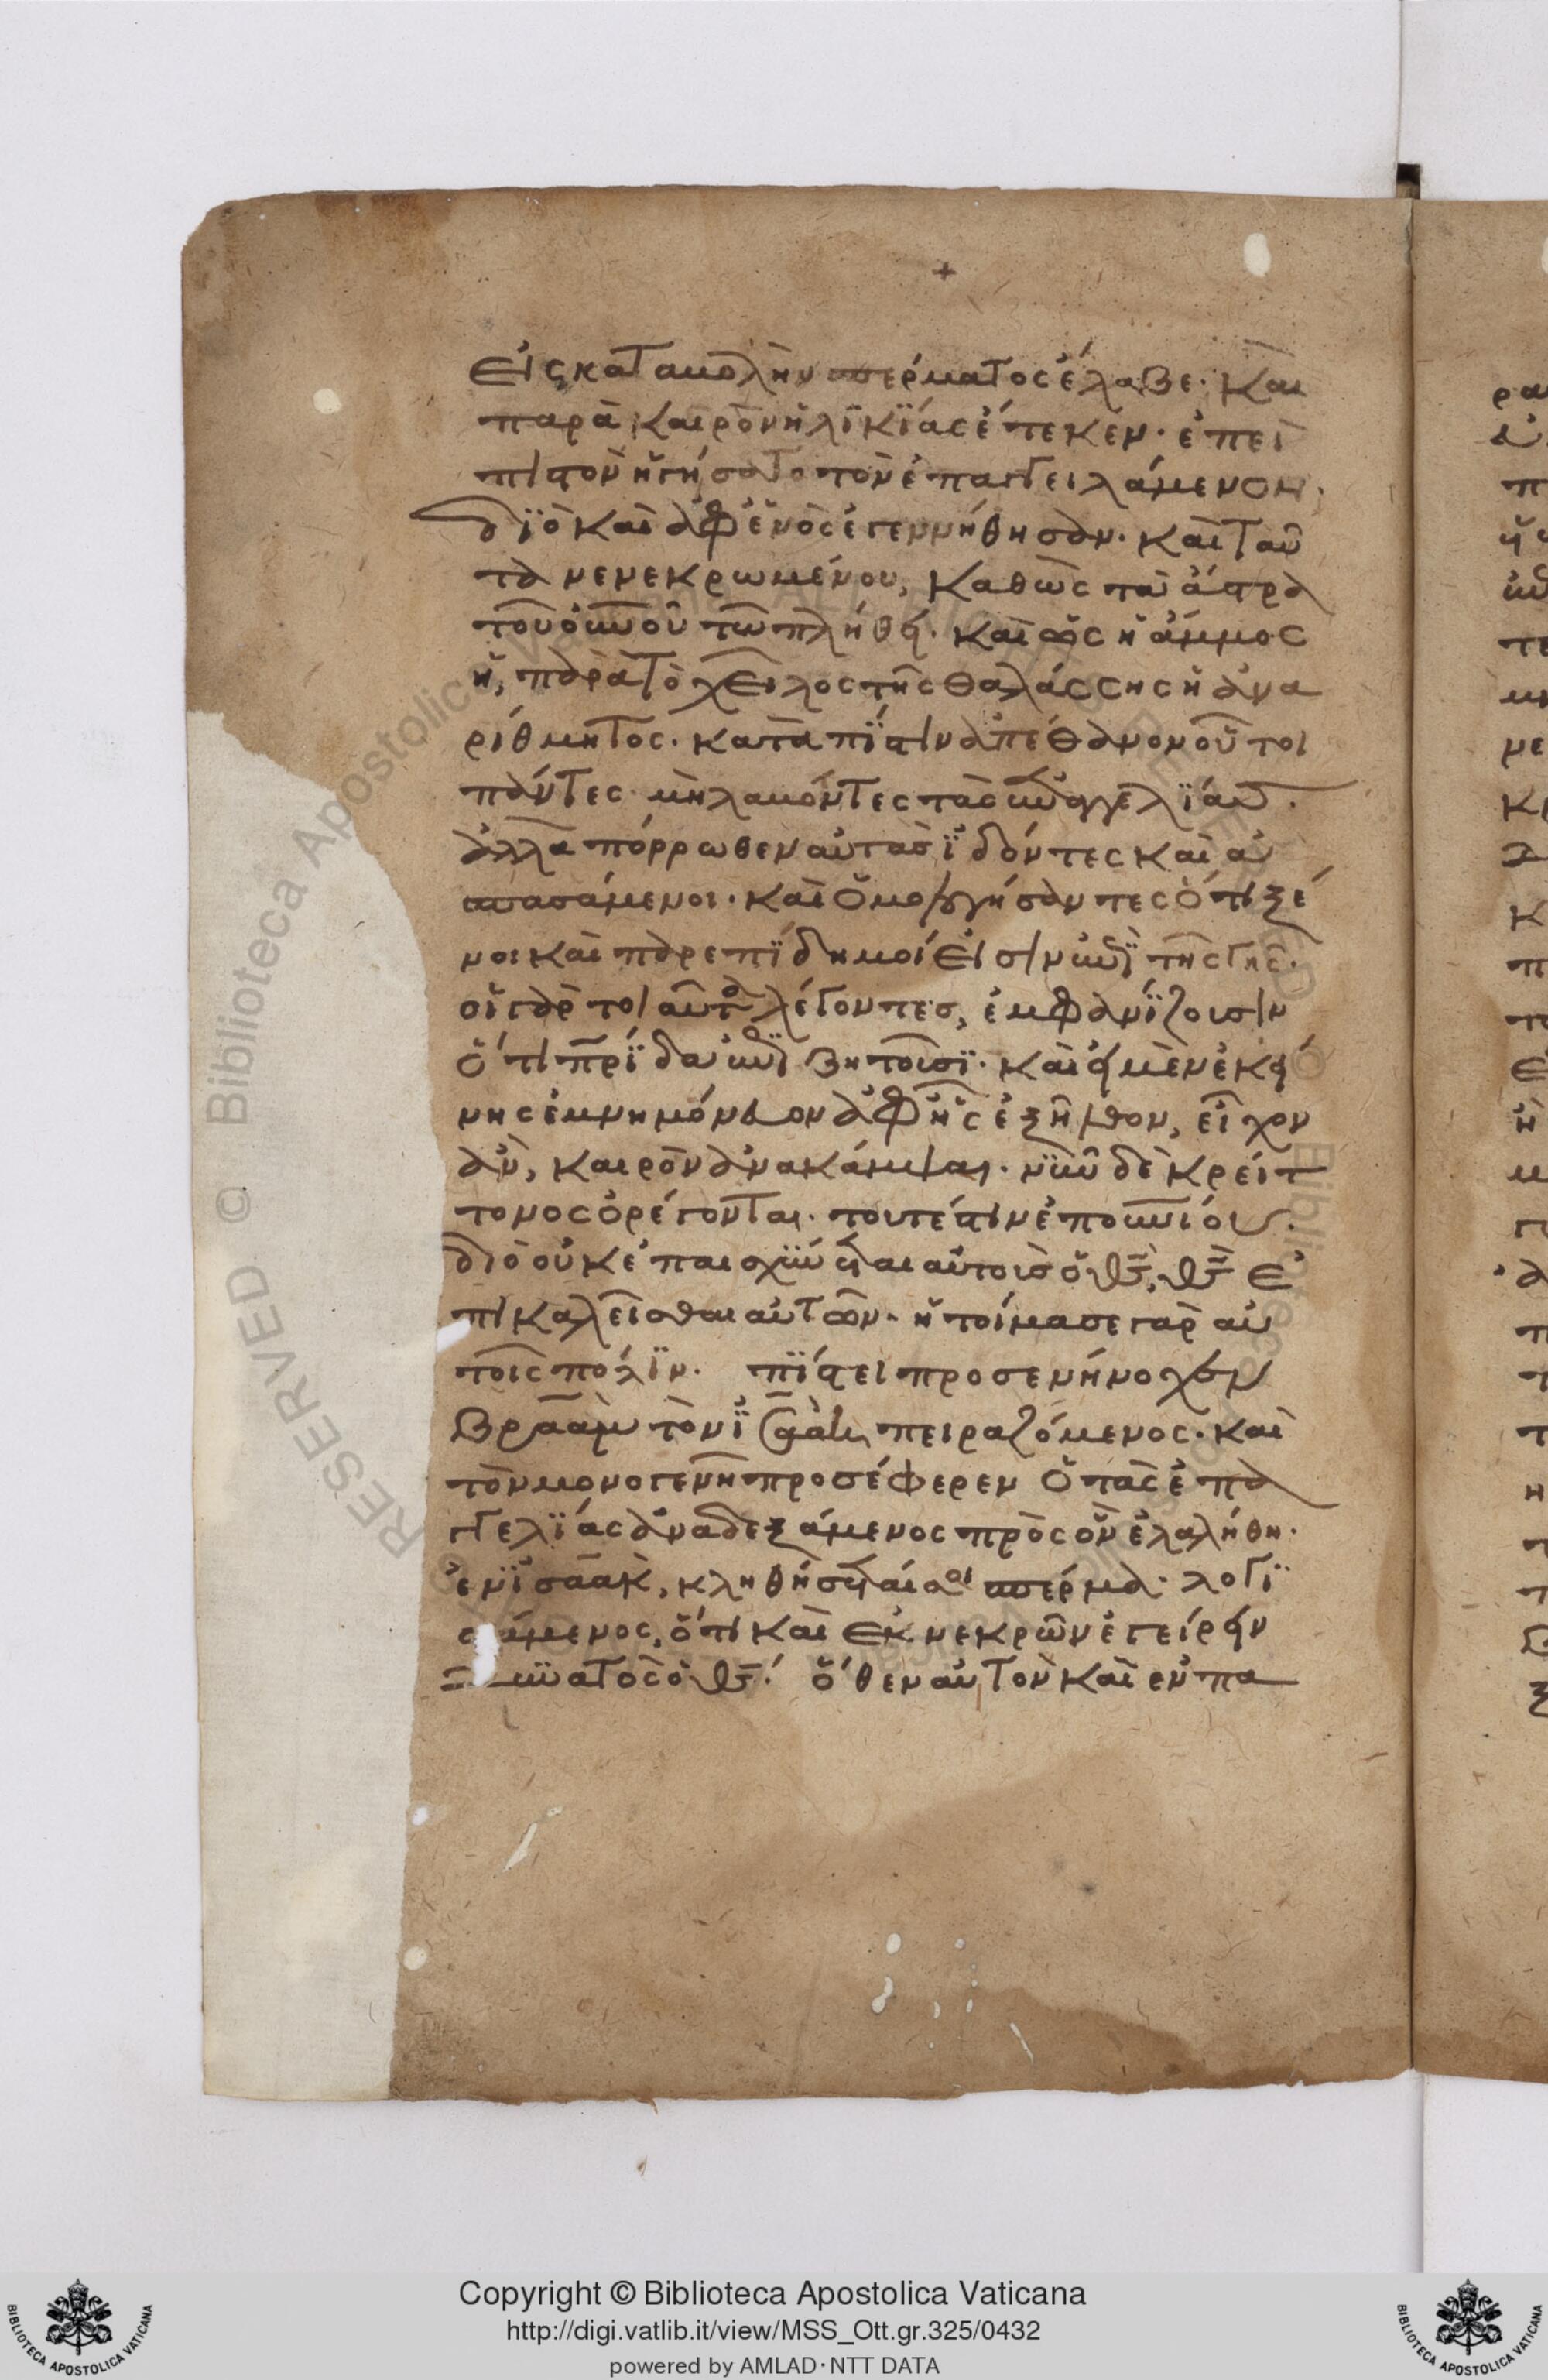 εἰς καταβολὴν σπέρματος ἔλαβε· καὶ
παρὰ καιρὸν ἡλικίας ἔτεκεν· ἐπεὶ
πιστὸν ἡγήσατο τὸν ἐπαγγειλάμενον·
διὸ καὶ ἀφ' ἑνὸς ἐγεννήθησαν· καὶ ταῦ
τα νενεκρωμένου, καθὼς τὰ ἄστρα
τοῦ οὐνοῦ τῶ πλήθει· καὶ ὡς ἡ ἄμμος
ἡ, παρὰ τὸ χεῖλος τῆς θαλάσσης ἡ ἀνα
ρίθμητος· κατὰ πίστιν ἀπέθανον οὗτοι
πάντες· μὴ λαβόντες τὰς ἐπαγγελίας·
ἀλλὰ πόρρωθεν αὐτὰς ἰδόντες καὶ ἀ
σπασάμενοι· καὶ ὁμολογήσαντες ὅτι ξέ
νοι καὶ παρεπίδημοί εἰσιν ἐπὶ τῆς γῆς·
οἱ γὰρ τοιαῦτα λέγοντες, ἐμφανίζουσιν
ὅτι πρίδα ἐπιζητοῦσι· καὶ εἰ μὲν ἐκεί
νης ἐμνημόνευον ἀφ' ἧς ἐξῆλθον, εἶχον
ἂν, καιρὸν ἀνακάμψαι· νῦν δὲ κρείτ
τονος ὀρέγονται· τουτέστιν ἐπουνίου·
διὸ οὐκ ἐπαισχύνεται αὐτοὺς ὁ θς, θς ἐ
πικαλεῖσθαι αὐτῶν· ἡτοίμασε γὰρ αὐ
τοῖς πόλιν· πίστει προσενήνοχεν
βραὰμ τὸν ἰσαὰκ πειραζόμενος· καὶ
τὸν μονογενῆ προσέφερεν ὁ τὰς ἐπα
γγελίας ἀναδεξάμενος πρὸς ὃν ἐλαλήθη·
ἐν ἰσαὰκ, κληθήσεταί σοι σπέρμα· λογι
σάμενος, ὅτι καὶ ἐκ νεκρῶν ἐγείρειν
δυνατὸς ὁ θς· ὅθεν αὐτὸν καὶ ἐν πα
Copyright © Biblioteca Apostolica Vaticana
http://digi.vatlib.it/view/MSS_Ott.gr.325/0432
powered by AMLAD·NTT DATA
BIBLIOTECA APOSTOLICA VATICANA
BIBLIOTECA APOSTOLICA VATICANA